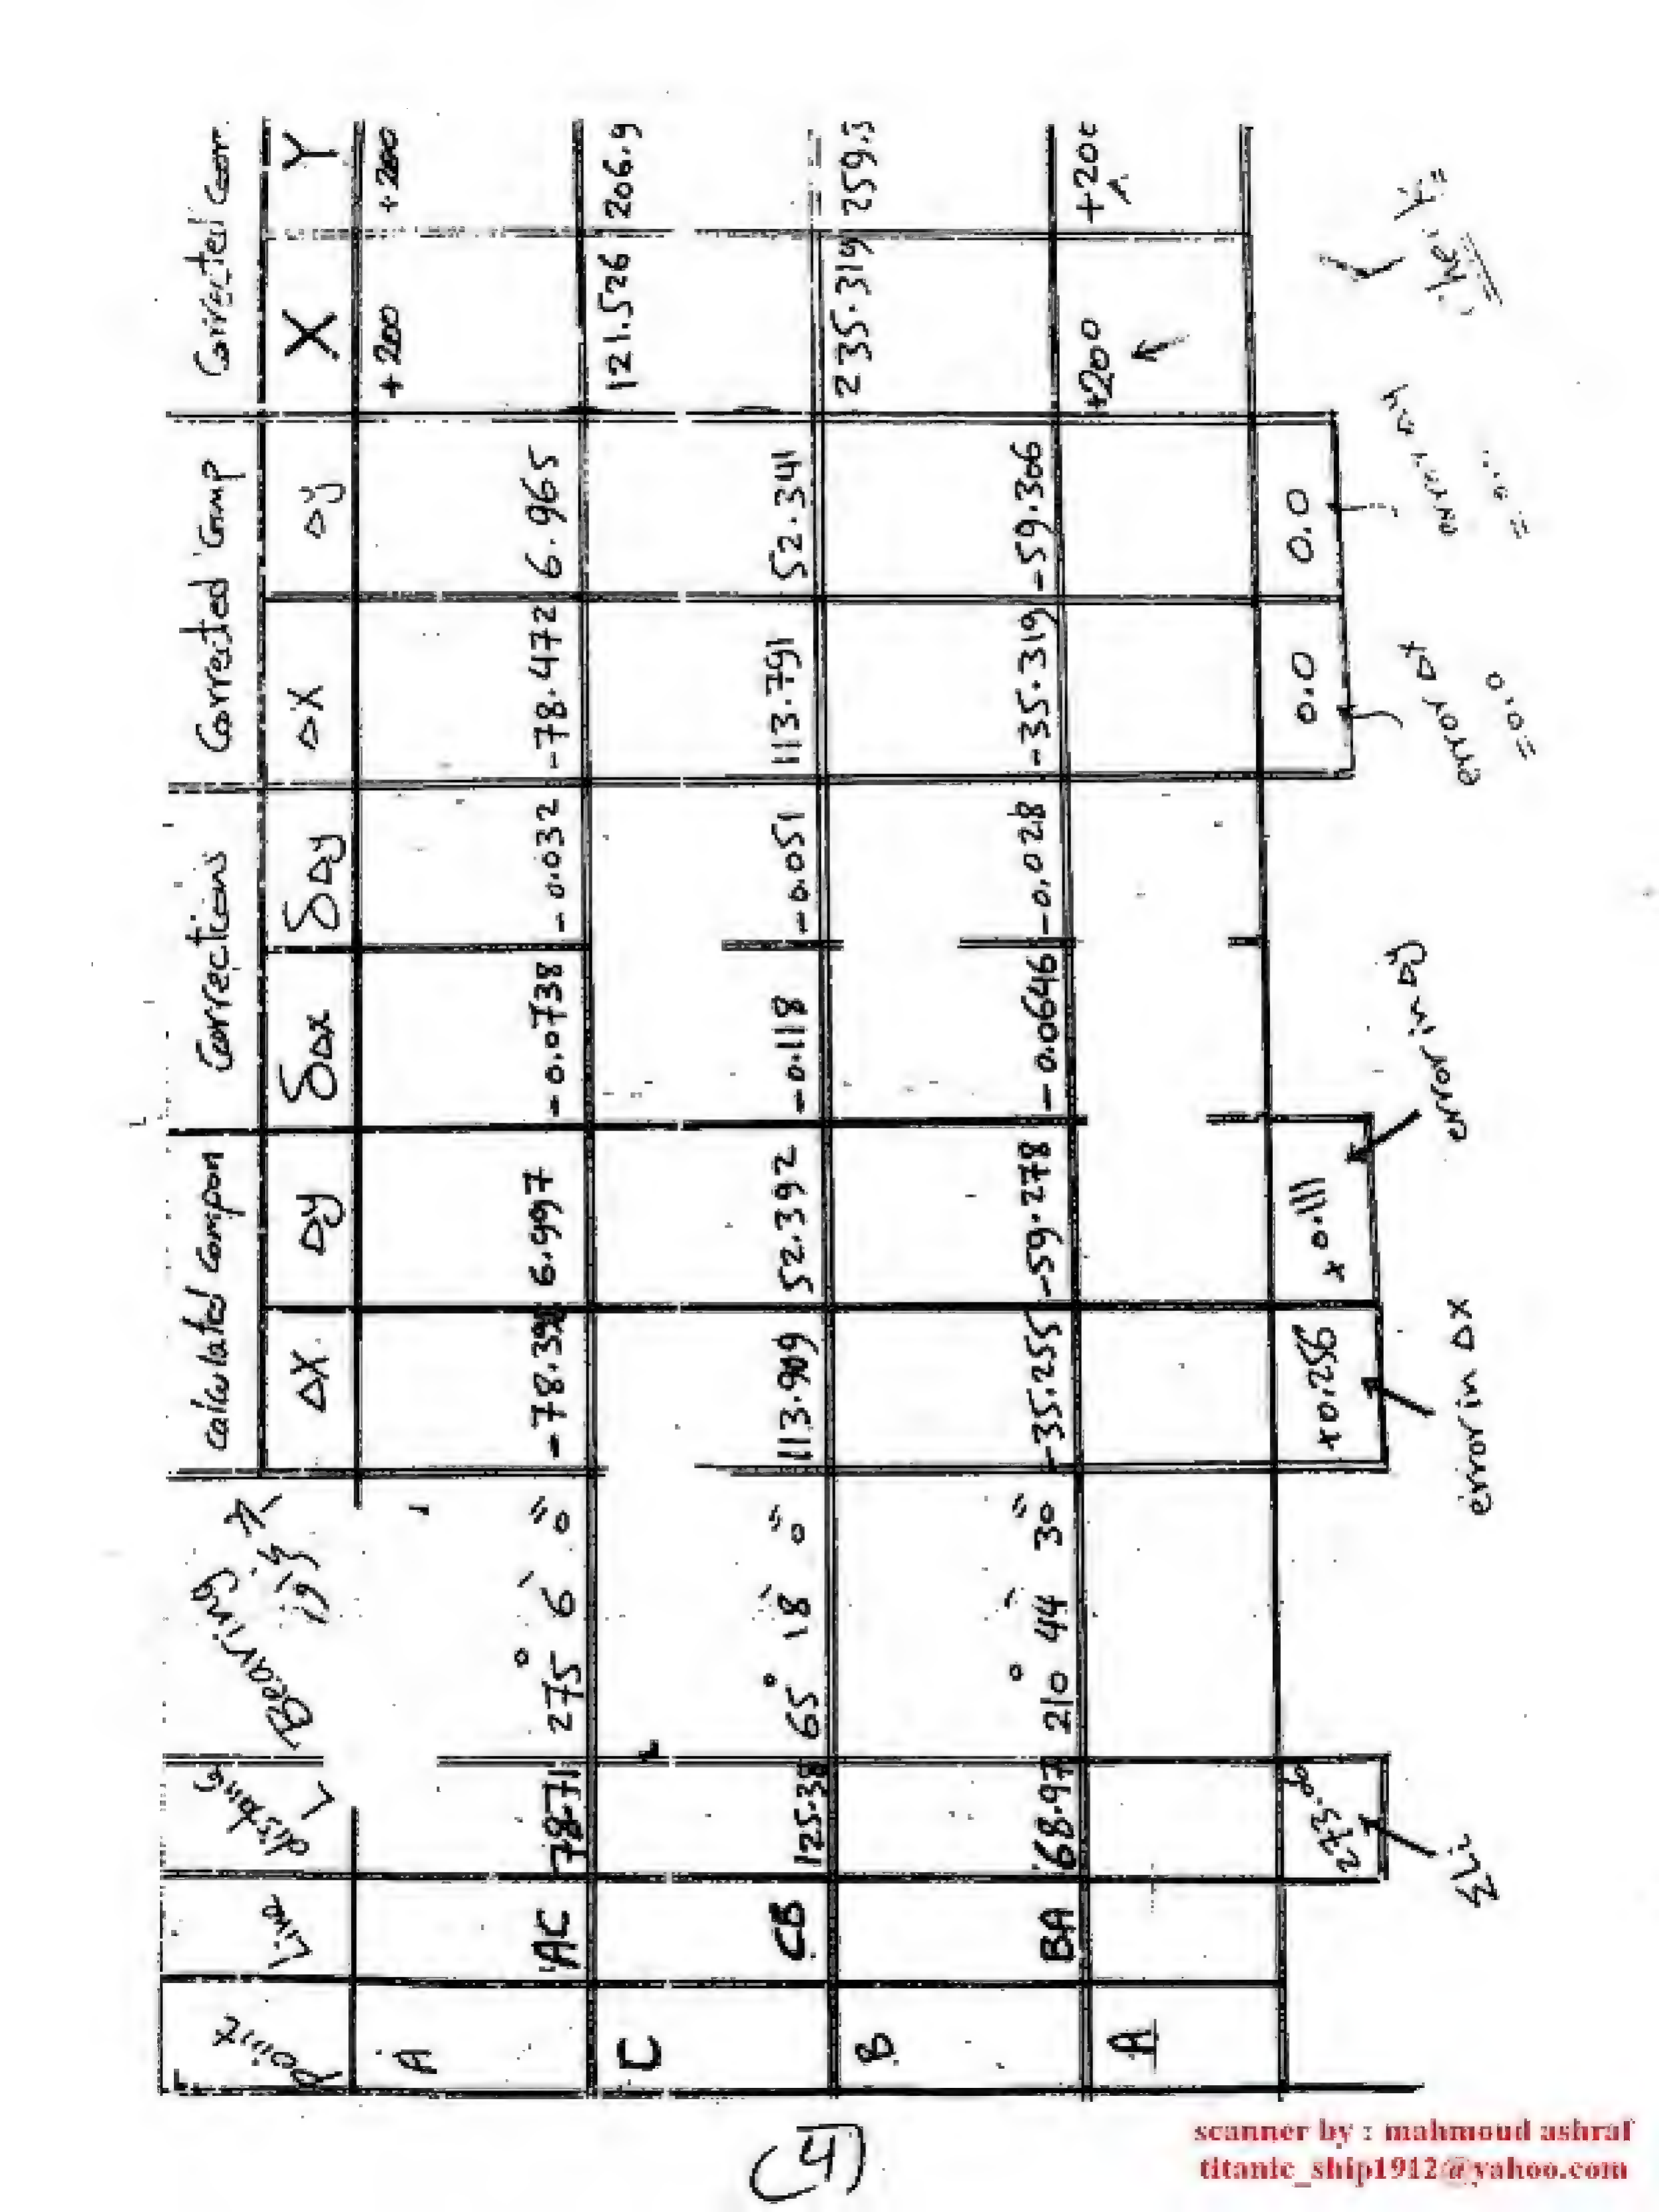 Point Line distance L Bearing calculated compon Corrections Corrected Comp Corrected Corr.
ΔX Δy δΔx δΔy ΔX Δy X Y
A +200 +200
AC 78.71 275° 6' 0" -78.398 6.997 -0.0738 -0.032 -78.472 6.965
C 121.526 206.9
CB 125.38 65° 18' 0" 113.909 52.392 -0.118 -0.051 113.791 52.341
B 235.319 259.3
BA 68.97 210° 44' 30" -35.255 -59.278 -0.0646 -0.028 -35.319 -59.306
A +200 +200
273.06 +0.256 +0.111 0.0 0.0
ΣLi error in ΔX error in Δy error ΔX error Δy
=0.0
(4)
scanner by : mahmoud ashraf
titanic_ship1912@yahoo.com